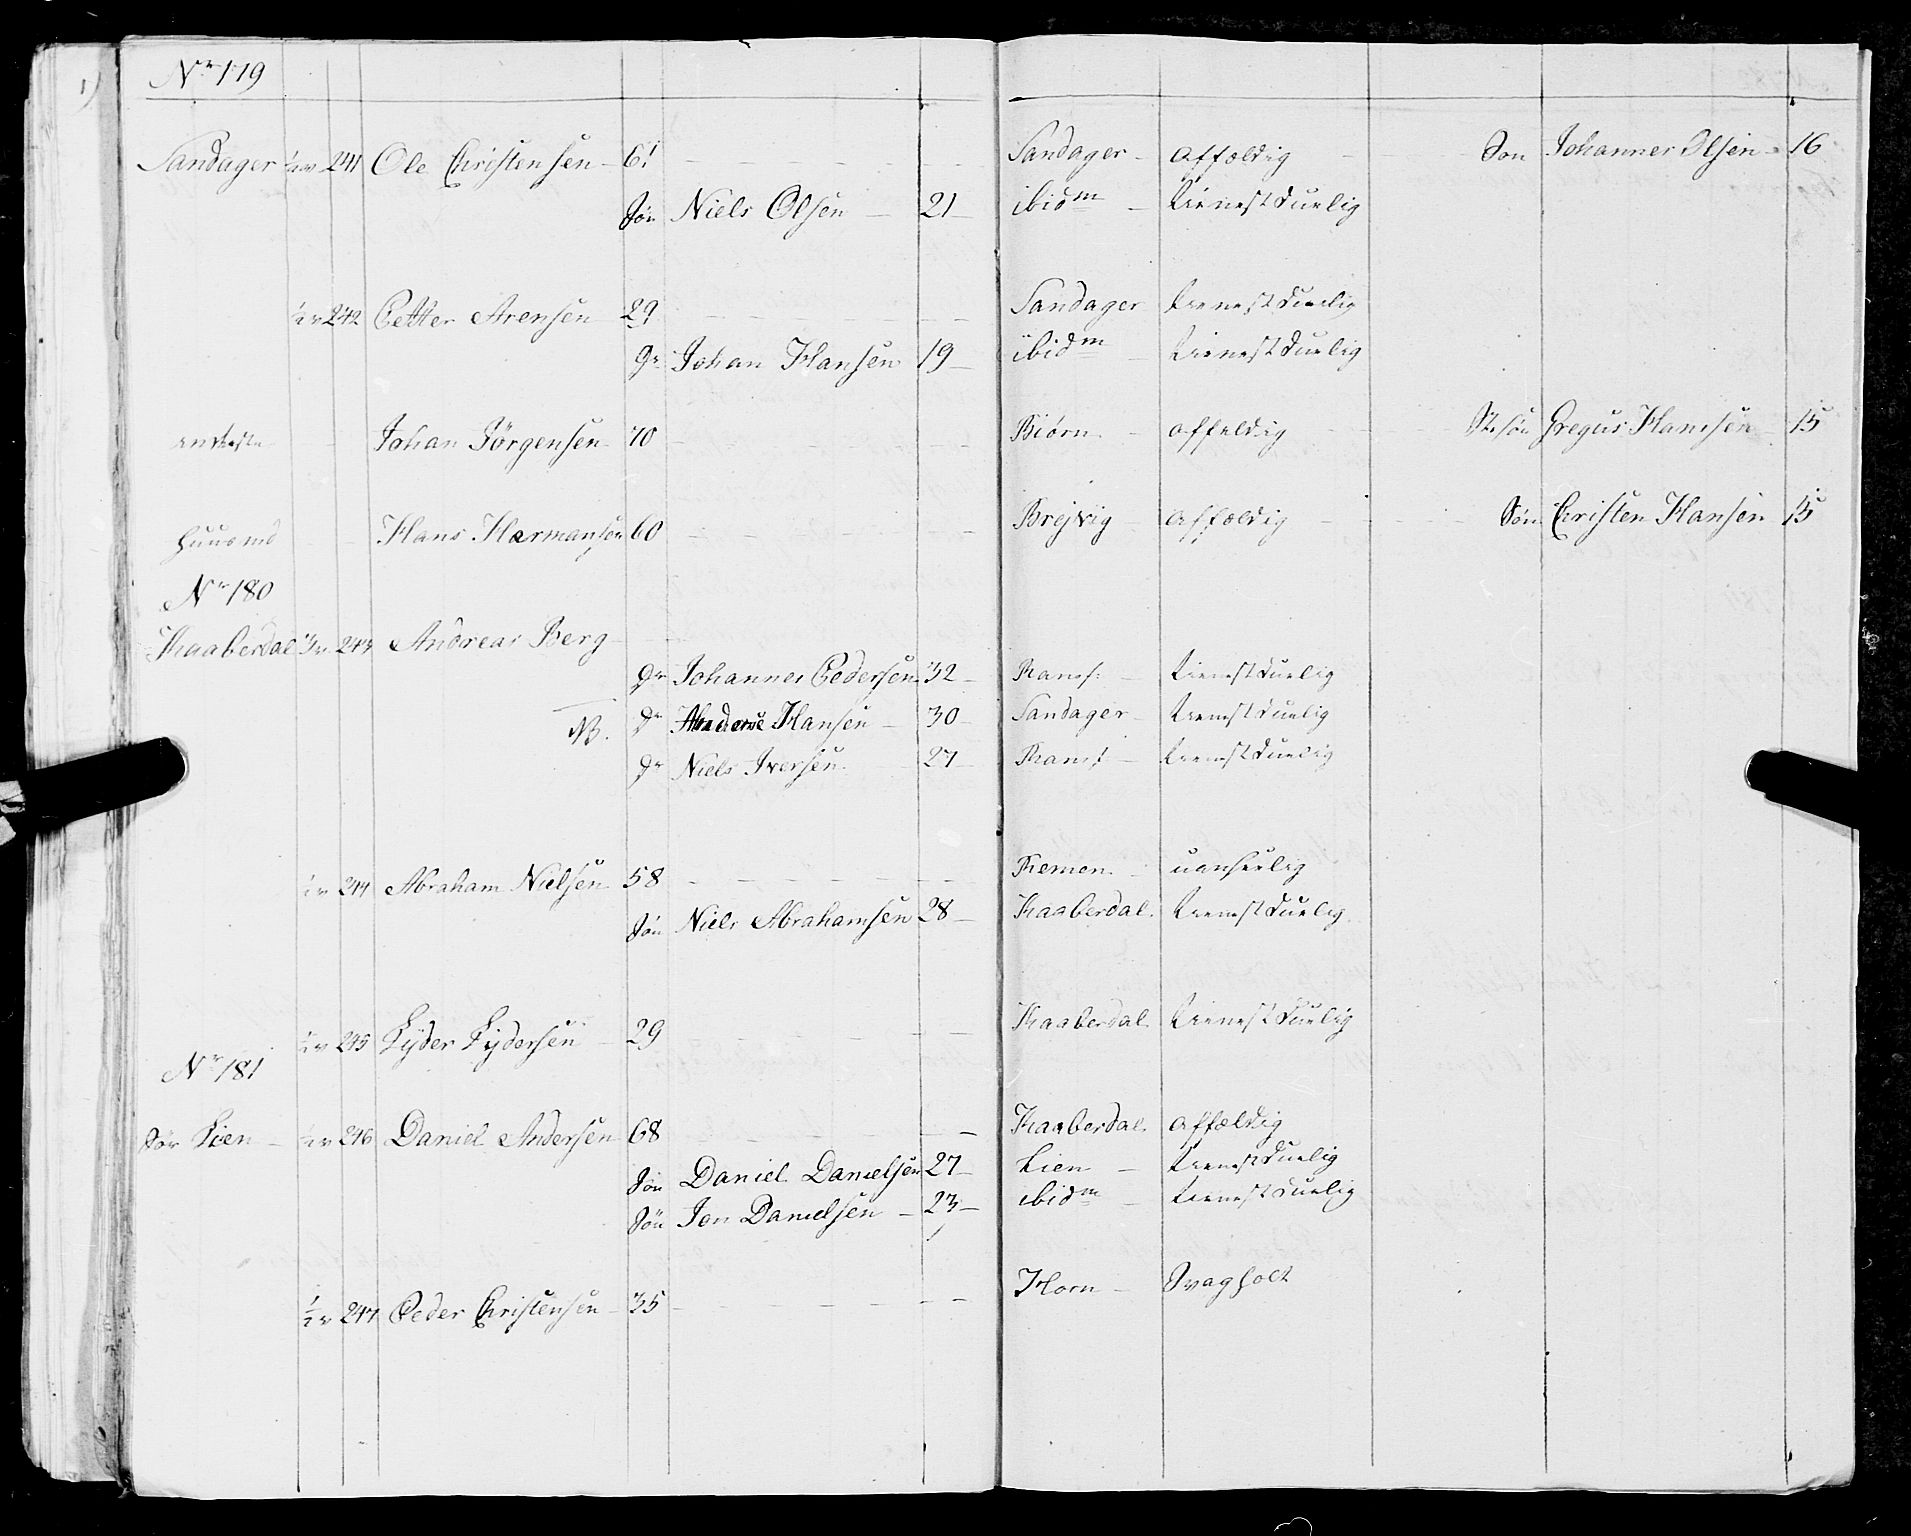 Nr 179
Sandager 241 Ole Christensen 61 Sandager affældig Søn Johannes Olsen 16
Søn Niels Olsen 21 ibidm tienestduelig
242 Petter Arensen 29 Sandager tienestduelig
Dr Johan Hansen 19 ibidm tienestduelig
Johan Jörgensen 70 Biörn affeldig St:søn Gregus Hansen 15
huusmd Hans Hermansen 60 Brejvig affældig Søn Christen Hansen 15
Nr 180
Kaaberdal 243 Andreas Berg
Dr Johannes Pedersen 32 Rams: tienestduelig
NB. Dr Hansen 30 Sandager tienestduelig
Dr Niels Iversen 27 Rams: tienestduelig
244 Abraham Nielsen 58 Remen
Søn Niels Abrahamsen 28 Kaaberdal tienestduelig
245 Lyder Lydersen 29 Kaaberdal tienestduelig
Nr 181
Sör Lien 1/2 v 246 Daniel Andersen 68 Kaaberdal affældig
Søn Daniel Danielsen 27 Lien tienestduelig
Søn Jon Danielsen 23 ibidm tienestduelig
1/2 v 247 Peder Christensen 35 Horn Svagholt